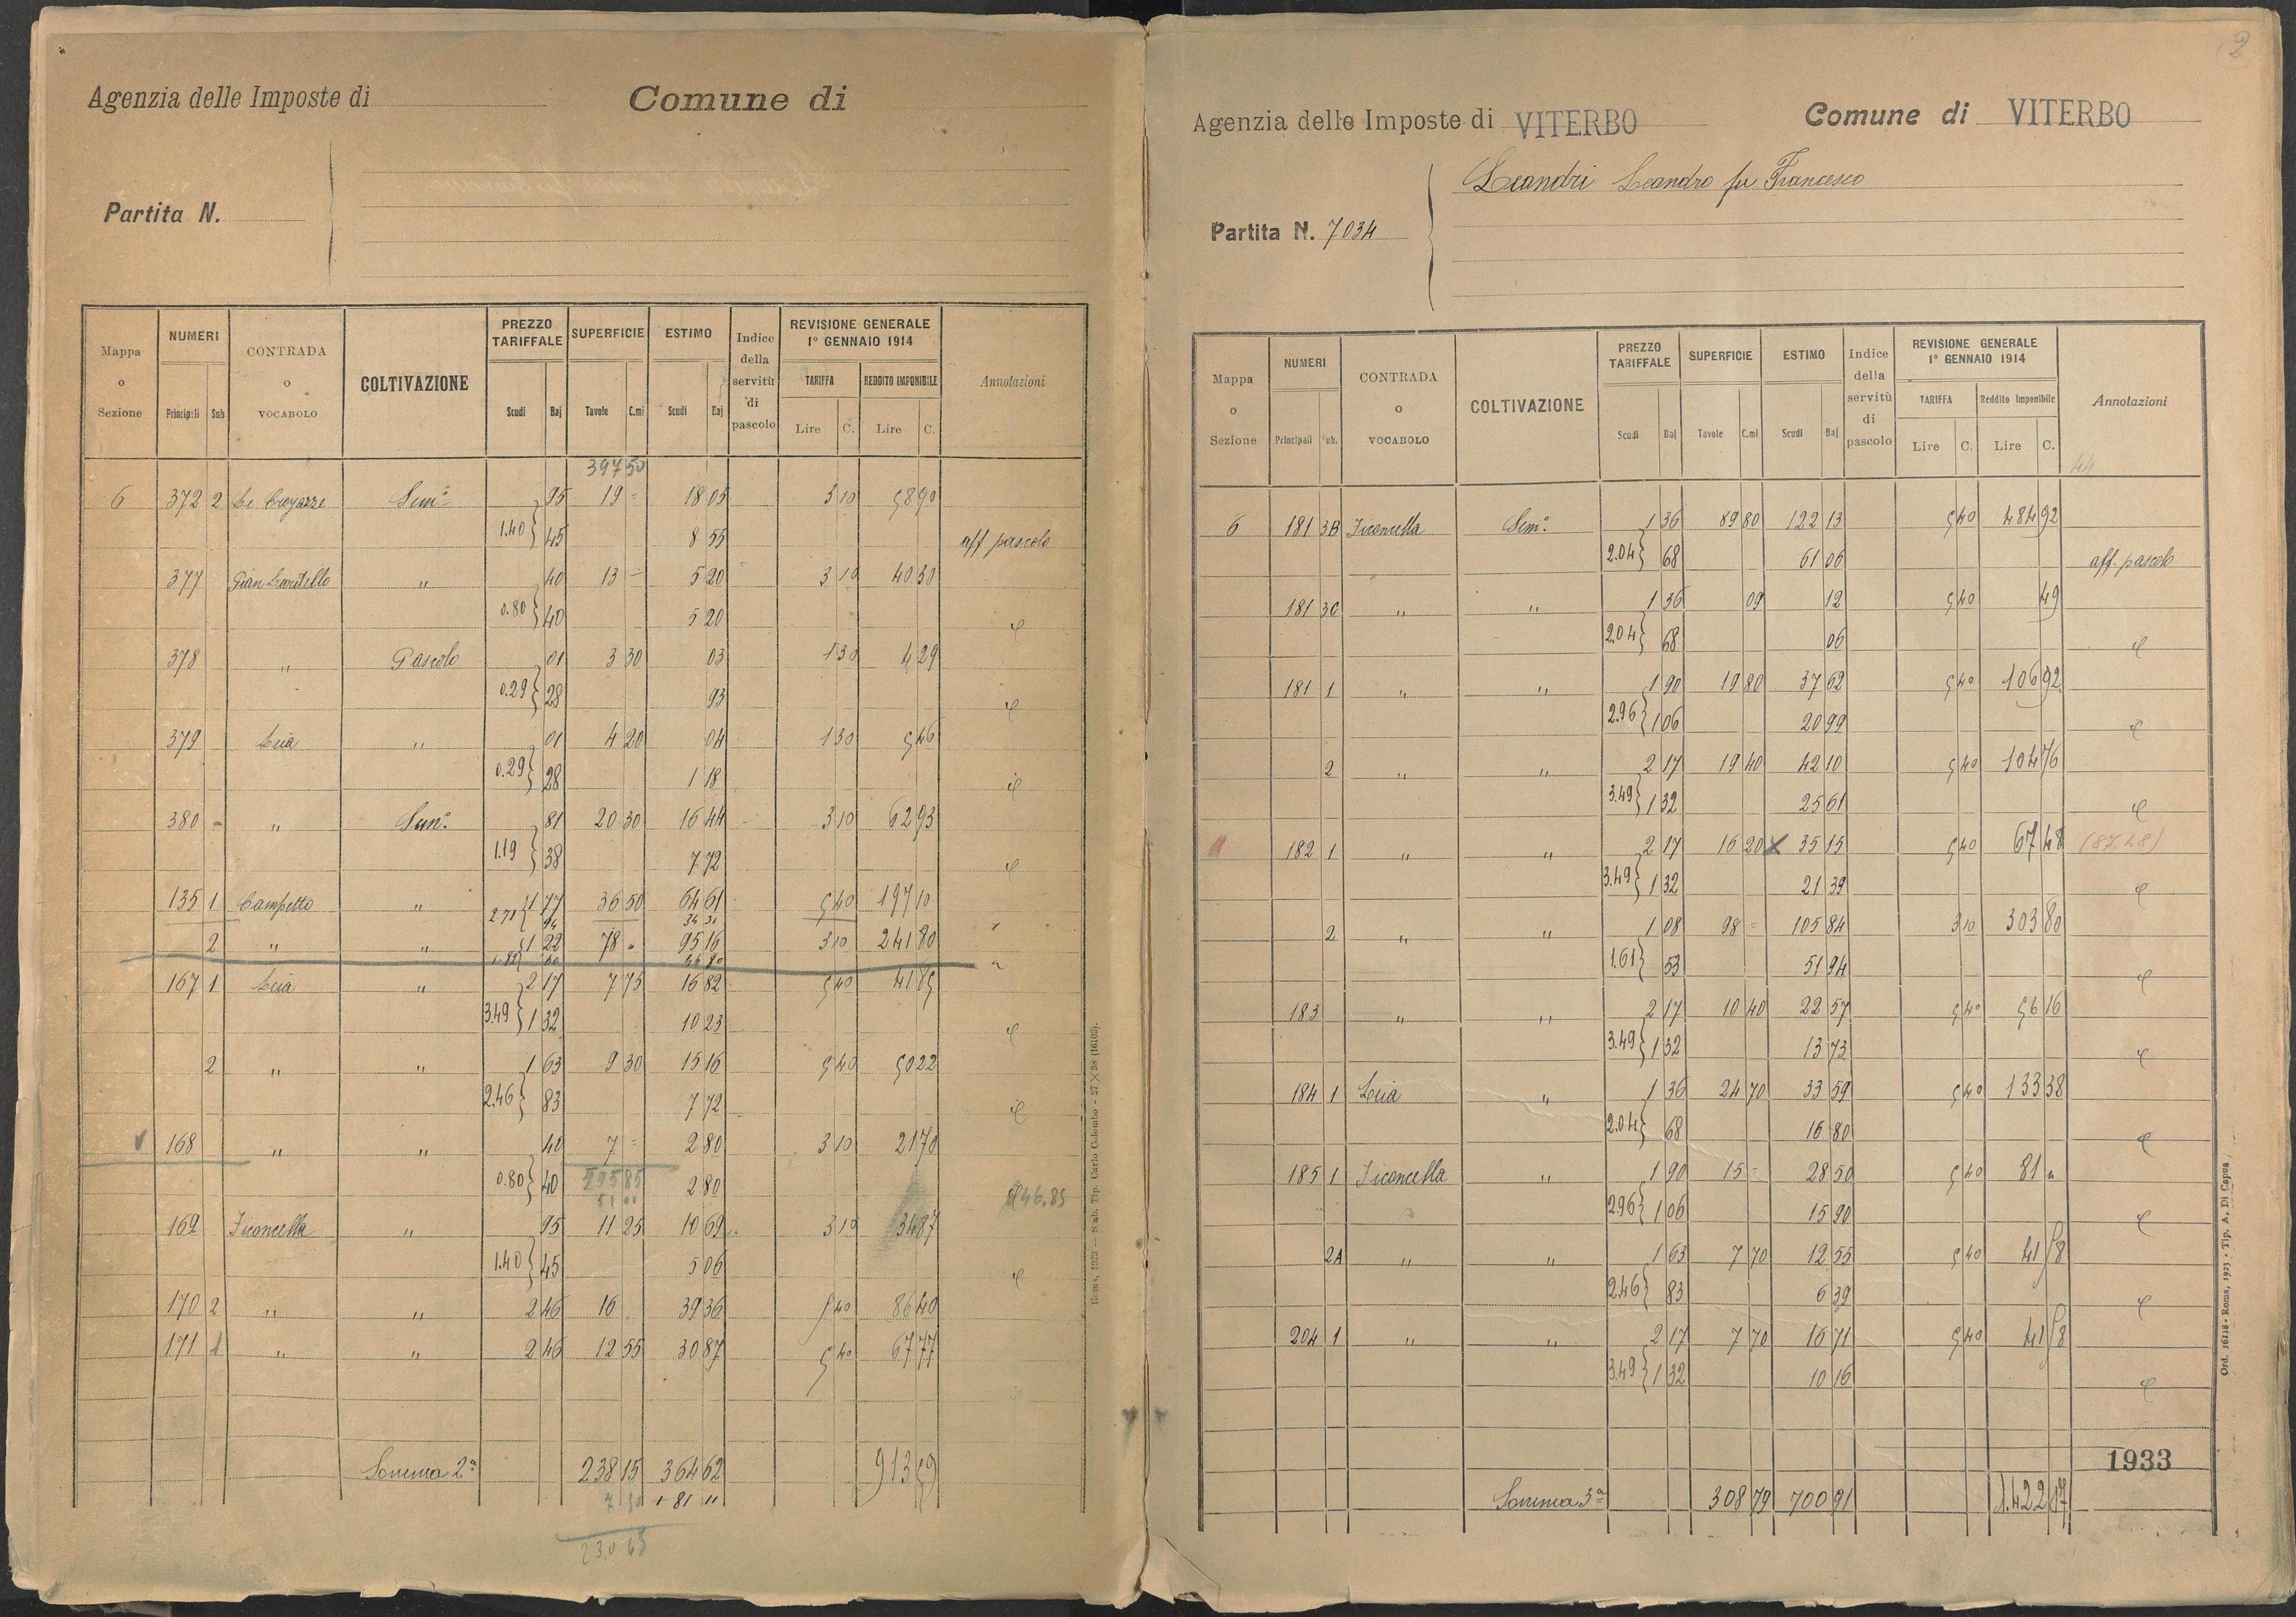 Agenzia delle Imposte di
Comune di
Partita N.
Mappa o Sezione
NUMERI
Principali Sub
CONTRADA o VOCABOLO
COLTIVAZIONE
PREZZO TARIFFALE
Scudi Baj
SUPERFICIE
Tavole C.mi
ESTIMO
Scudi Baj
Indice della servitù di pascolo
REVISIONE GENERALE 1° GENNAIO 1914
TARIFFA
Lire C.
REDDITO IMPONIBILE
Lire C.
Annotazioni
397 50
6 372 2 Sem° 95 19 = 18 05 3 10 58 90
1.40 45 8 55 aff pascolo
377 " 40 13 = 5 20 3 10 40 30
0.80 40 5 20
378 " Pascolo 01 3 30 03 1 30 4 29
0.29 28 93
379 " 01 4 20 04 1 30 5 46
0.29 28 1 18
380 " Sem° 81 20 30 16 44 3 10 62 93
1.19 38 7 72
135 1 Campetto " 1 77 36 50 64 61 5 40 197 10
2.71 94 34 31
2 " " 1 22 78 " 95 16 3 10 241 80
60
167 1 " 2 17 7 75 16 82 5 40 41 85
3.49 1 32 10 23
2 " " 1 63 9 30 15 16 5 40 50 22
2.46 83 7 72
168 " " 40 7 = 2 80 3 10 21 70
0.80 40 2 80
46.85
169 Ficoncella " 95 11 25 10 69 3 10 34 87
1.40 45 5 06
170 2 " " 2 46 16 39 36 5 40 86 40
171 1 " " 2 46 12 55 30 87 5 40 67 77
Somma 2a 238 15 364 62 913 59
+ 81 "
Roma, 1923 — Stab. Tip. Carlo Colombo - 27 × 38 (16103).
2
Agenzia delle Imposte di VITERBO
Comune di VITERBO
Leandri Leandro fu Francesco
Partita N. 7034
Mappa o Sezione
NUMERI
Principali Sub.
CONTRADA o VOCABOLO
COLTIVAZIONE
PREZZO TARIFFALE
Scudi Baj
SUPERFICIE
Tavole C.mi
ESTIMO
Scudi Baj
Indice della servitù di pascolo
REVISIONE GENERALE 1° GENNAIO 1914
TARIFFA
Lire C.
Reddito Imponibile
Lire C.
Annotazioni
44
6 181 3B Ficoncella Sem° 1 36 89 80 122 13 5 40 484 92
2.04 68 61 06 aff. pascolo
181 3C " " 1 36 09 12 5 40 49
2.04 68 06
181 1 " " 1 90 19 80 37 62 5 40 106 92
2.96 1 06 20 99
2 " " 2 17 19 40 42 10 5 40 104 76
3.49 1 32 25 61
182 1 " " 2 17 16 20 X 35 15 5 40 67 48 (87,48)
3.49 1 32 21 39
2 " " 1 08 98 = 105 84 3 10 303 80
1.61 53 51 94
183 " " 2 17 10 40 22 57 5 40 56 16
3.49 1 32 13 73
184 1 " 1 36 24 70 33 59 5 40 133 38
2.04 68 16 80
185 1 Ficoncella " 1 90 15 = 28 50 5 40 81 "
2.96 1 06 15 90
2A " " 1 63 7 70 12 55 5 40 41 58
2.46 83 6 39
204 1 " " 2 17 7 70 16 71 5 40 41 58
3.49 1 32 10 16
1933
Somma 3a 308 79 700 91 1.422 17
Ord. 16118 - Roma, 1923 - Tip. A. Di Capua